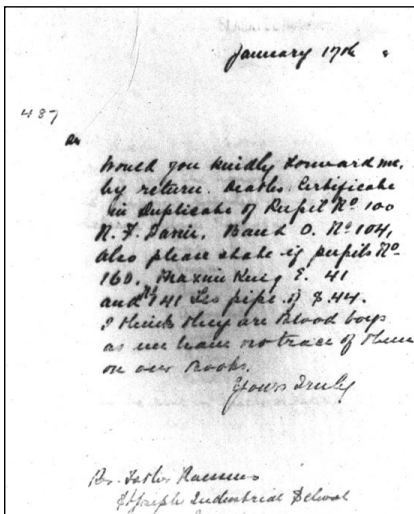 January 17th
487
Would you kindly forward me,
by return. Deaths Certificate
in Duplicate of Pupil No 100
Band O. No 104,
also please state if pupils No
160,
and 141
I think they are Blood boys
as we have no trace of them
on our Books.
Yours Truly
Father
St Joseph Industrial School